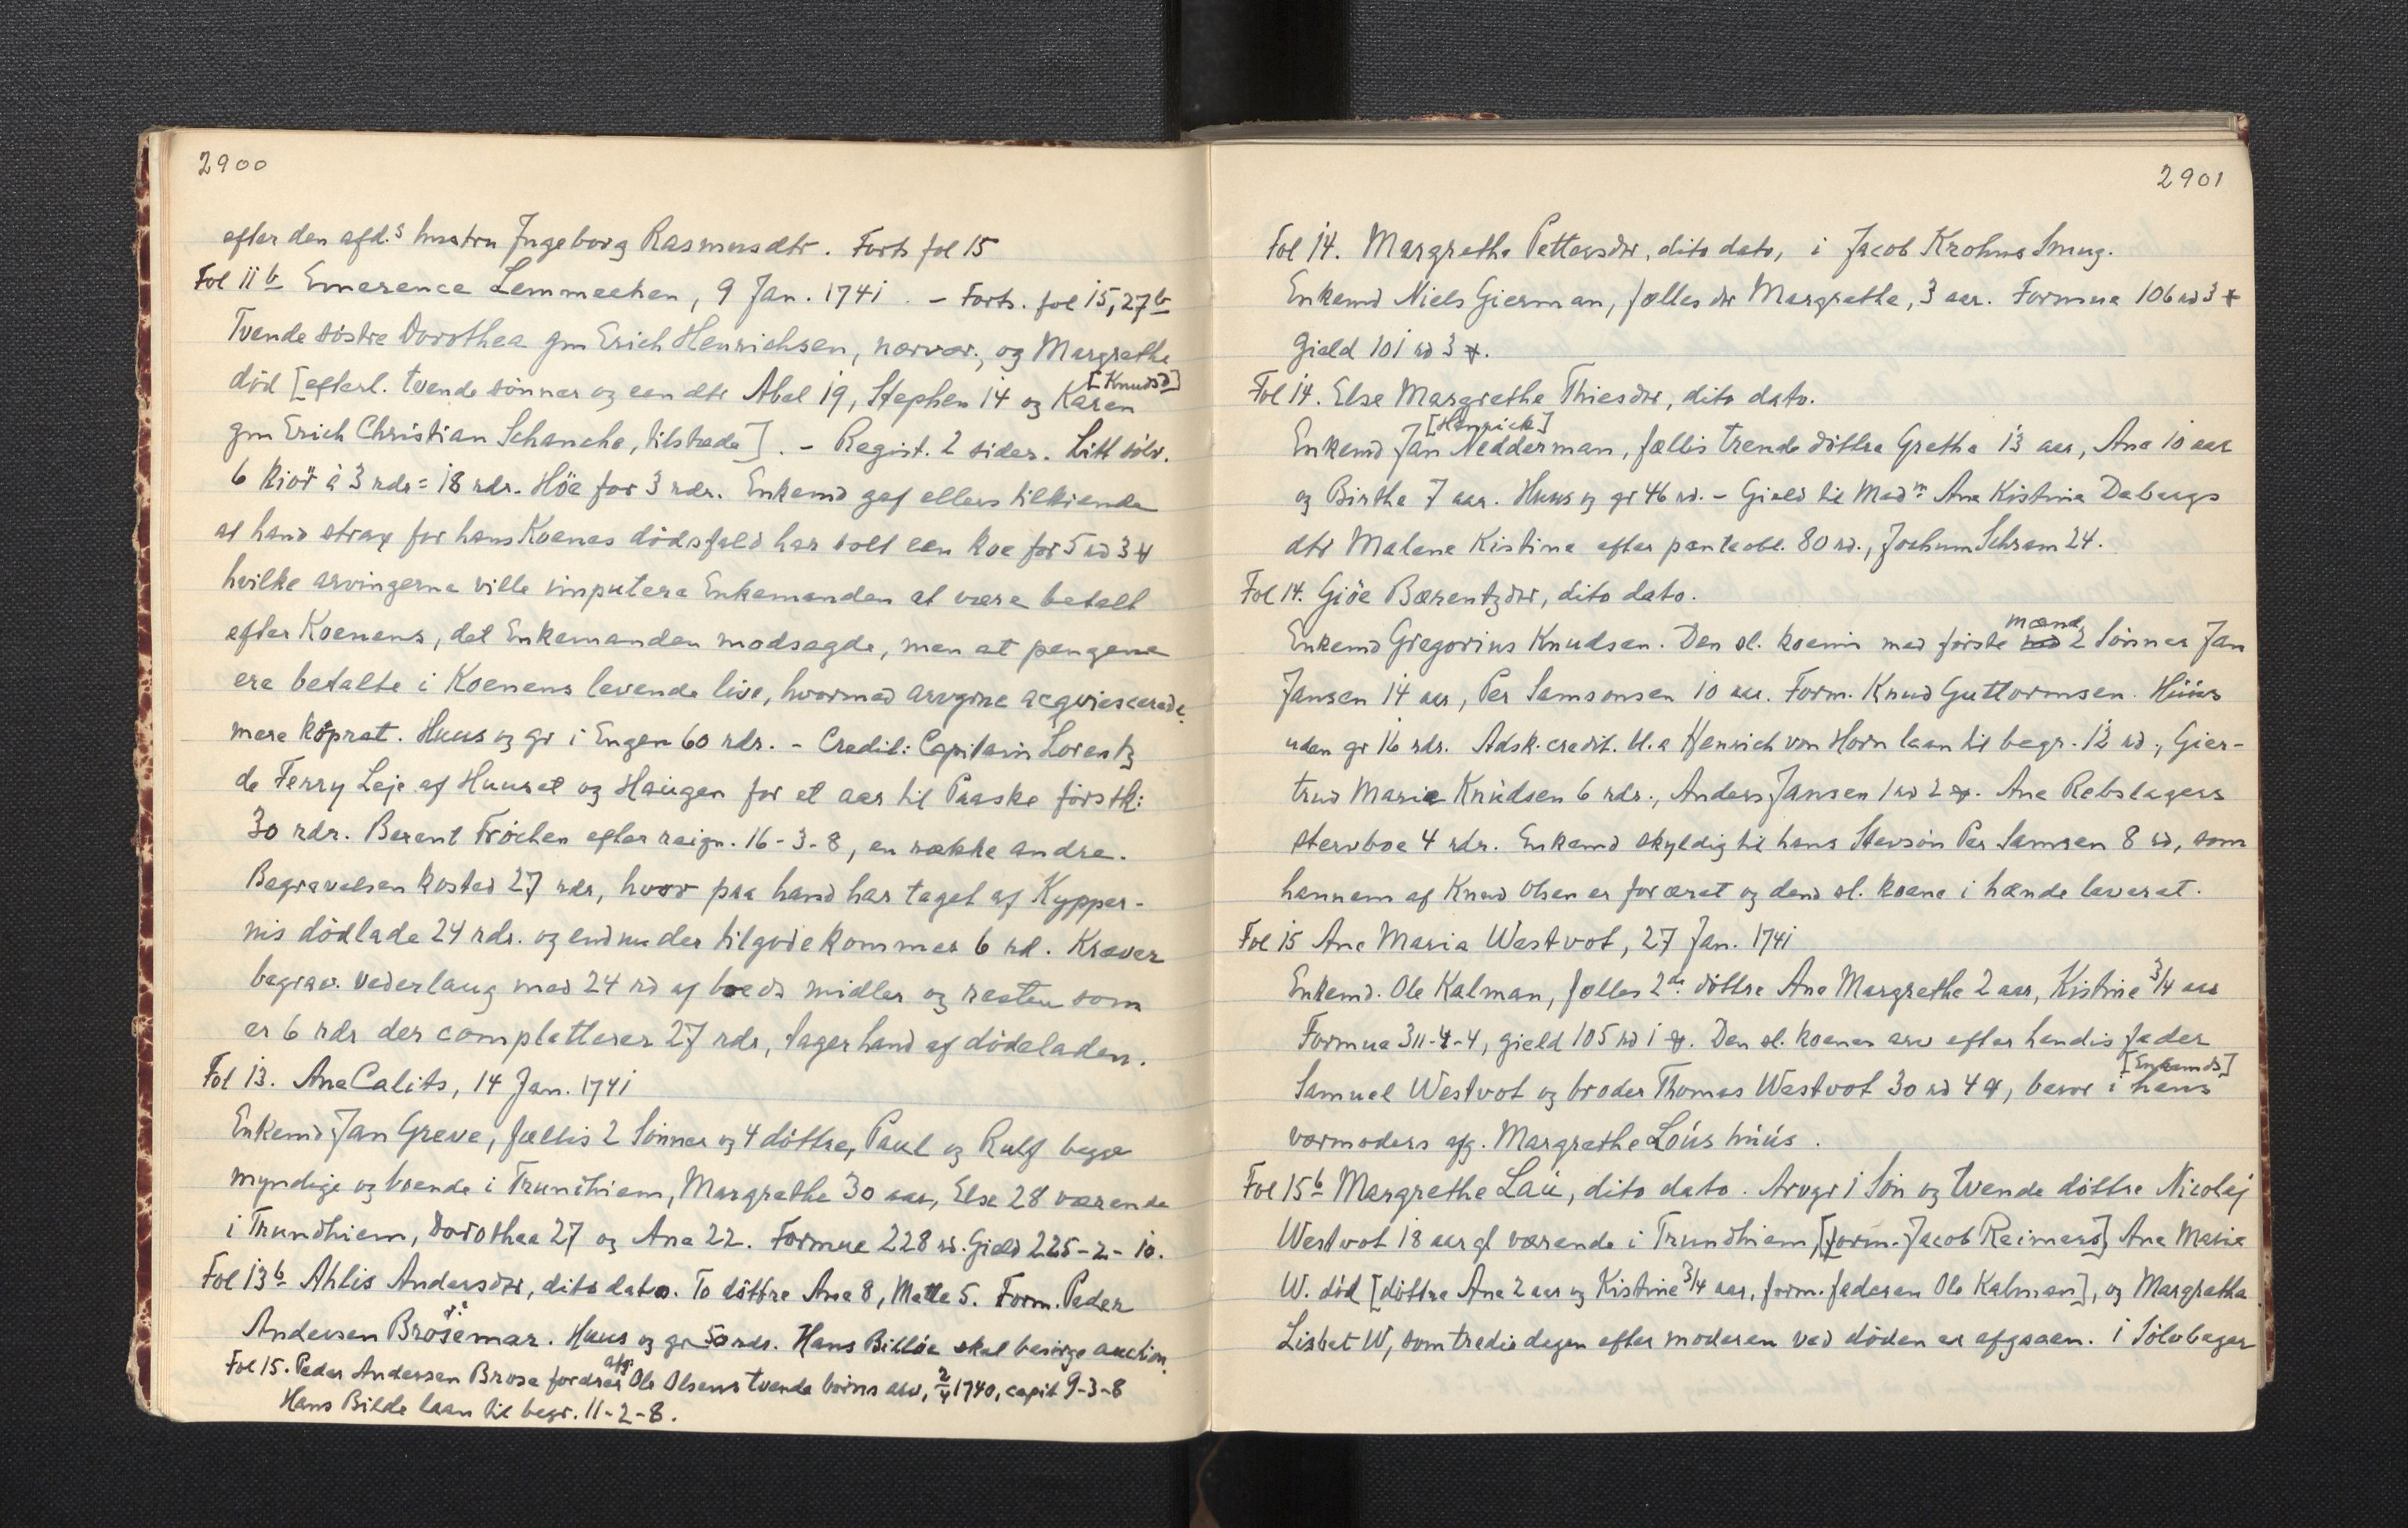 2900
efter den afd.s hustru Jngeborg Rasmusdtr. Forts fol 15
Fol 11 b Emerence Lemmechen, 9 Jan. 1741. - Forts. fol 15, 27 b
Tvende søstre Dorothea gm Erich Henrichsen, nærvær., og Margrethe
død [efterl. tvende sönner og een dtr Abel 19, Stephen 14 og Karen [Knudsd]
gm Erich Christian Schanche, tilstæde]. - Regist. 2 sider. Litt sölv.
6 kiör à 3 rdr = 18 rdr. Höe for 3 rdr. Enkemd gaf ellers tilkiende
at hand strax for hans Koenes dödsfald har solt een koe for 5 rd 3
hvilke arvingerne ville imputere Enkemanden at være betalt
efter Koenens, det Enkemanden modsagde, men at pengene
ere betalte i Koenens levende live, hvormed arvgrne acqviescerede.
mere köprat. Huus og gr i Engen 60 rdr. - Credit: Capitain Lorentz
de Ferry Leje af Huuset og Haugen for et aar til Paaske förstk:
30 rdr. Berent Fröchen efter reign. 16-3-8, en række andre.
Begravelsen kosted 27 rdr, hvor paa hand har taget af Kypper-
nis dödlade 24 rdr. og endnu der tilgode kommer 6 rd. Kræver
begrav. vederlaug med 24 rd af boeds midler og resten som
er 6 rdr der completterer 27 rdr, tager hand af dödeladen.
Fol 13. Ane Calits, 14 Jan. 1741
Enkemd Jan Greve, fællis 2 Sönner og 4 döttre, Paul og Rulf begge
myndige og boende i Trundhiem, Margrethe 30 aar, Else 28 værende
i Trundhiem, Dorothea 27 og Ane 22. Formue 228 rd. Gield 225-2-10.
Fol 13 b Ahlis Andersdtr, dito dato. To döttre Ane 8, Mette 5. Form. Peder
Andersen Brosemar. Huus og gr 50 rdr. Hans Billöe skal besörge auction.
Fol 15. Peder Andersen Brose fordrer afg. Ole Olsens tvende börns arv, 2/4 1740, capit 9-3-8
Hans Bilde laan til begr. 11-2-8.
2901
Fol 14. Margrethe Pettersdtr, dito dato, i Jacob Krohns Smug.
Enkemd Niels Gierman, fælles dtr Margrethe, 3 aar. Formue 106 rd 3
Gield 101 rd 3
Fol 14. Else Margrethe Thiesdtr, dito dato.
Enkemd Jan [Henrick] Nedderman, fællis trende döttre Grethe 13 aar, Ane 10 aar
og Birthe 7 aar. Huus og gr 46 rd. - Gield til Madm Ane Kistine Debergs
dtr Malene Kistine efter panteobl. 80 rd., Jochum Schram 24.
Fol 14. Giöe Bærentzdtr, dito dato.
Enkemd Gregorius Knudsen. Den sl. koenn med förste mand 2 Sönner Jan
Jansen 14 aar, Per Samsonsen 10 aar. Form. Knud Guttormsen. Huus
uden gr 16 rdr. Adsk. credit. bl.a Henrich von Horn laan til begr. 12 rd., Gier-
trud Marie Knudsen 6 rdr., Anders Jansen 1 rd 2. Ane Rebslagers
stervboe 4 rdr. Enkemd skyldig til hans Stevsön Per Samsen 8 rd, som
hannem af Knud Olsen er foræret og dend sl. koene i hænde leveret.
Fol 15 Ane Maria Westvot, 27 Jan. 1741
Enkemd. Ole Kalman, fælles 2de döttre Ane Margrethe 2 aar, Kistine 3/4 aar
Formue 311-4-4, gield 105 rd 1. Den sl. koenes arv efter hendis fader
Samuel Westvot og broder Thomas Westvot 30 rd 4, beror i hans [Enkemds]
værmoders afg. Margrethe Loús húús.
Fol 15 b Margrethe Laú, dito dato. Arvgr 1 Sön og tvende döttre Nicolaj
Westvot 18 aar gl værende i Trundhiem, [form. Jacob Reimers] Ane Marie
W. död [döttre Ane 2 aar og Kistine 3/4 aar, form. faderen Ole Kalman], og Margretha
Lisbet W, som tredie dagen efter moderen ved döden er afgaaen. 1 Sölvbeger